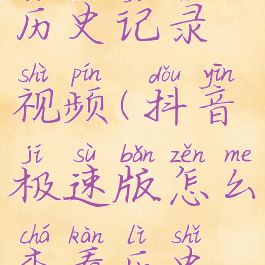 历史记录
shì pín dǒu yīn
视频(抖音
jí sù bǎn zěn me
极速版怎么
chá kàn lì shǐ
查看历史